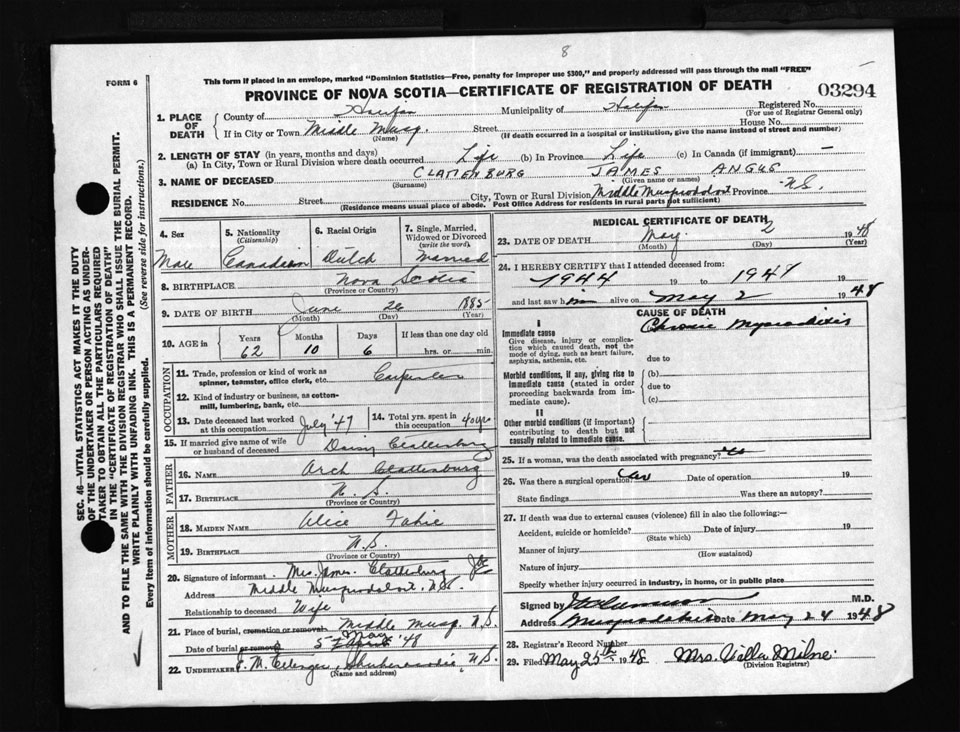 8
FORM 6
This form if placed in an envelope, marked "Dominion Statistics—Free, penalty for improper use $300," and properly addressed will pass through the mail "FREE"
PROVINCE OF NOVA SCOTIA—CERTIFICATE OF REGISTRATION OF DEATH
03294
1. PLACE OF DEATH
County of Halifax Municipality of Halifax Registered No.
(For use of Registrar General only)
If in City or Town Middle Musq. Street House No.
(Name) (If death occurred in a hospital or institution, give the name instead of street and number)
2. LENGTH OF STAY (in years, months and days)
(a) In City, Town or Rural Division where death occurred Life (b) In Province Life (c) In Canada (if immigrant) —
3. NAME OF DECEASED CLATTENBURG JAMES ANGUS
(Surname) (Given name or names)
RESIDENCE No. Street City, Town or Rural Division Middle Musquodoboit Province N.S.
(Residence means usual place of abode. Post Office Address for residents in rural parts not sufficient)
4. Sex
Male
5. Nationality
(Citizenship)
Canadian
6. Racial Origin
Dutch
7. Single, Married, Widowed or Divorced
(write the word)
Married
8. BIRTHPLACE Nova Scotia
(Province or Country)
9. DATE OF BIRTH June 26 1885
(Month) (Day) (Year)
10. AGE in Years Months Days If less than one day old
62 10 6 hrs. or min.
OCCUPATION
11. Trade, profession or kind of work as spinner, teamster, office clerk, etc. Carpenter
12. Kind of industry or business, as cotton-mill, lumbering, bank, etc.
13. Date deceased last worked at this occupation July '47
14. Total yrs. spent in this occupation 40 yrs
15. If married give name of wife or husband of deceased Daisy Clattenburg
FATHER
16. NAME Arch Clattenburg
17. BIRTHPLACE N. S.
(Province or Country)
MOTHER
18. MAIDEN NAME Alice Fahie
19. BIRTHPLACE N.S.
(Province or Country)
20. Signature of informant Mrs. James Clattenburg
Address Middle Musquodoboit, N.S.
Relationship to deceased Wife
21. Place of burial, cremation or removal Middle Musq. N.S.
Date of burial or removal 5 May April '48
22. UNDERTAKER N.S.
(Name and address)
MEDICAL CERTIFICATE OF DEATH
23. DATE OF DEATH May 2 1948
(Month) (Day) (Year)
24. I HEREBY CERTIFY that I attended deceased from:
1944 19 to 1948 19
and last saw him alive on May 2 1948
CAUSE OF DEATH
I
Immediate cause Chronic Myocarditis
Give disease, injury or complication which caused death, not the mode of dying, such as heart failure, asphyxia, asthenia, etc.
due to
Morbid conditions, if any, giving rise to immediate cause (stated in order proceeding backwards from immediate cause).
(b)
due to
(c)
II
Other morbid conditions (if important) contributing to death but not causally related to immediate cause.
25. If a woman, was the death associated with pregnancy?
26. Was there a surgical operation? Date of operation 19
State findings Was there an autopsy?
27. If death was due to external causes (violence) fill in also the following:—
Accident, suicide or homicide? Date of injury 19
(State which)
Manner of injury
(How sustained)
Nature of injury
Specify whether injury occurred in industry, in home, or in public place
Signed by M.D.
Address Date May 24 1948
28. Registrar's Record Number
29. Filed May 25th 1948 Mrs. Milne
(Division Registrar)
SEC. 46—VITAL STATISTICS ACT MAKES IT THE DUTY
OF THE UNDERTAKER OR PERSON ACTING AS UNDER-
TAKER TO OBTAIN ALL THE PARTICULARS REQUIRED
IN THE "CERTIFICATE OF REGISTRATION OF DEATH"
AND TO FILE THE SAME WITH THE DIVISION REGISTRAR WHO SHALL ISSUE THE BURIAL PERMIT.
WRITE PLAINLY WITH UNFADING INK. THIS IS A PERMANENT RECORD.
Every item of information should be carefully supplied. (See reverse side for instructions.)